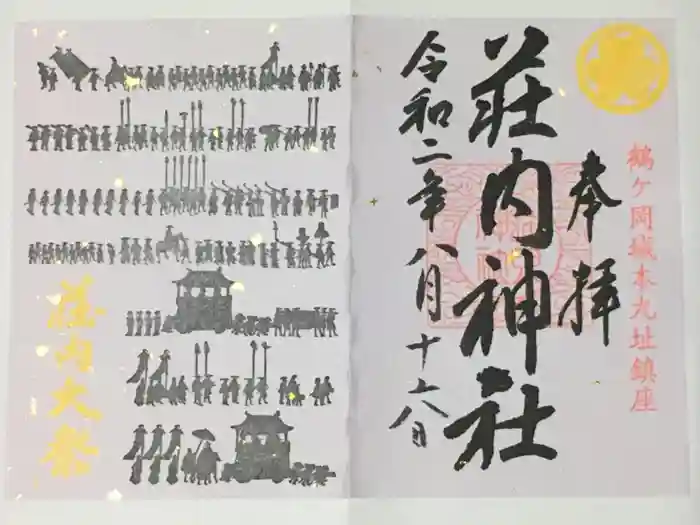 鶴ヶ岡城本丸址鎮座
奉拝
荘内神社
令和二年八月十六日
荘内大祭